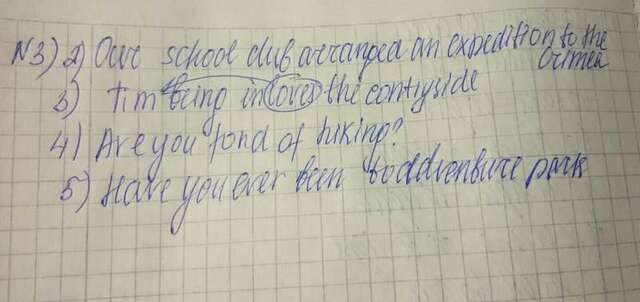 N3) 2) Our school club arranged an expedition to the
Crimea
3) Tim being in loves the contryside
4) Are you fond of hiking?
5) Have you ever been to addrenture park